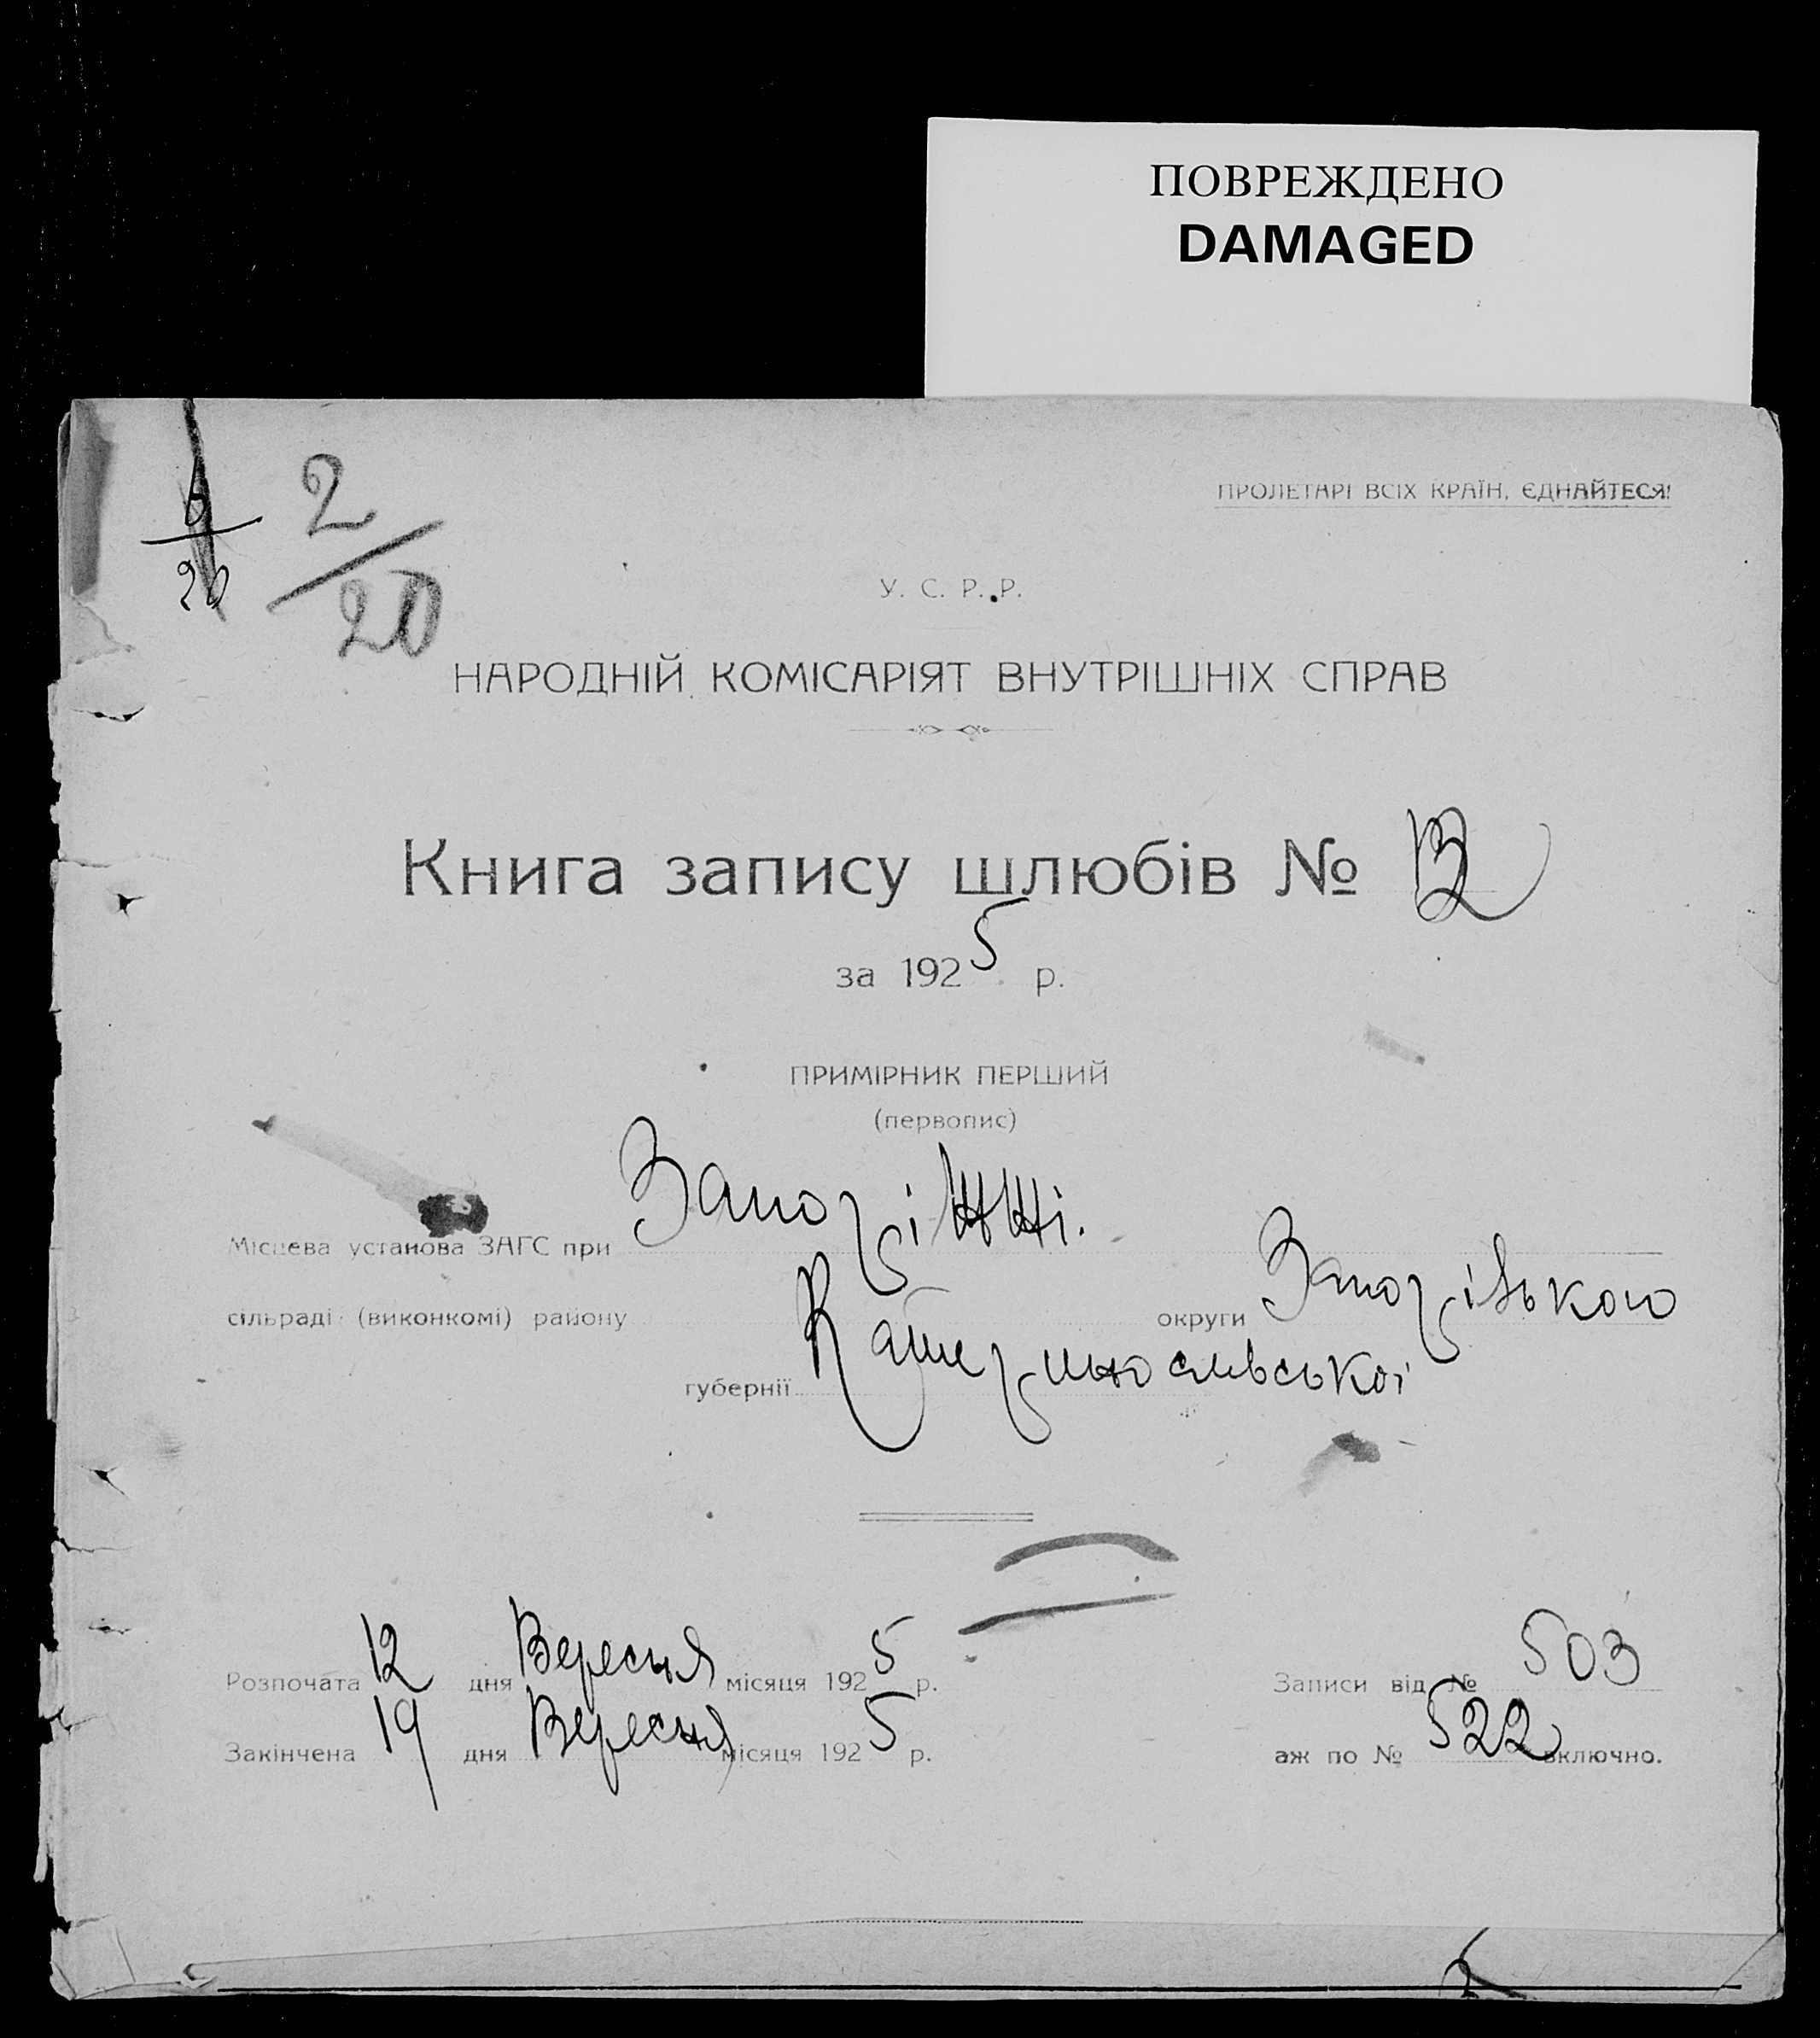 ПОВРЕЖДЕНО
DAMAGED
ПРОЛЕТАРІ ВСІХ КРАЇН, ЄДНАЙТЕСЯ!
6/20 2/20
У. С. Р. Р.
НАРОДНІЙ КОМІСАРІЯТ ВНУТРІШНІХ СПРАВ
Книга запису шлюбів №
за 1925 р.
ПРИМІРНИК ПЕРШИЙ
(первопис)
Місцева установа ЗАГС при Запоріжжі.
сільраді (виконкомі) району округи Запорізького
губернії Катеринославської
Розпочата 12 дня Вересня місяця 1925 р. Записи від № 503
Закінчена 19 дня Вересня місяця 1925 р. аж по № 522 включно.